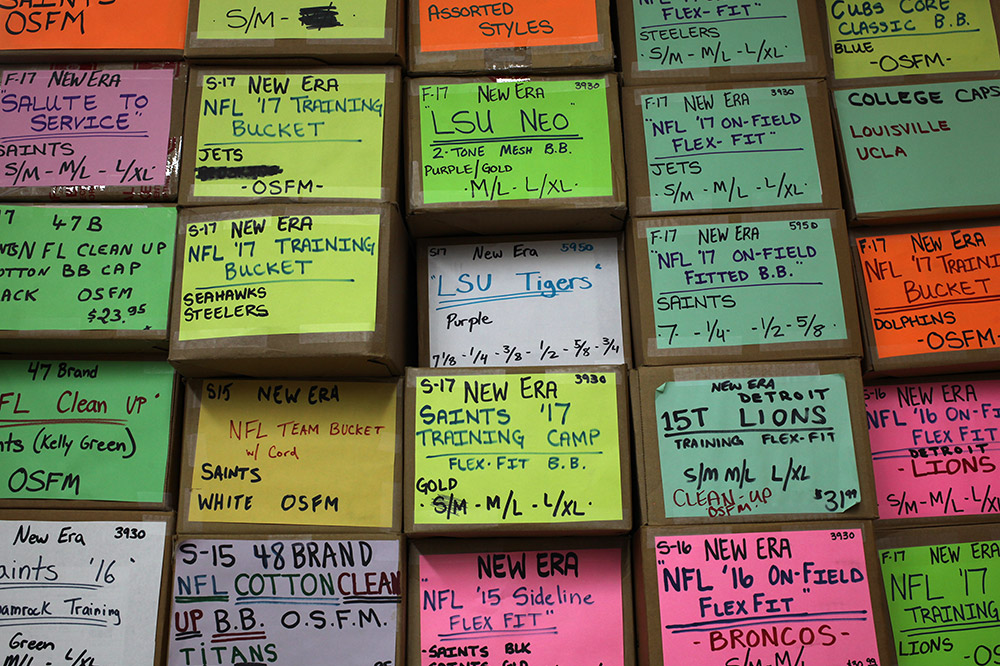 SAINTS
OSFM
S/M -
ASSORTED
STYLES
NFL '17 ON-FIELD
FLEX-FIT"
STEELERS
- S/M - M/L - L/XL
CUBS CORE
CLASSIC B.B.
BLUE
-OSFM-
F-17 NEW ERA
"SALUTE TO
SERVICE"
SAINTS
S/M - M/L - L/XL
S-17 NEW ERA
NFL '17 TRAINING
BUCKET
JETS
-OSFM-
F-17 NEW ERA 3930
"LSU NEO"
2-TONE MESH B.B.
PURPLE/GOLD
- M/L - L/XL -
F-17 NEW ERA 3930
"NFL '17 ON-FIELD
FLEX-FIT"
JETS
- S/M - M/L - L/XL -
COLLEGE CAPS
LOUISVILLE
UCLA
17 47 B
NFL CLEAN UP
COTTON BB CAP
OSFM
$23.95
S-17 NEW ERA
NFL '17 TRAINING
BUCKET
SEAHAWKS
STEELERS
S17 New Era 5950
"LSU Tigers"
Purple
7 1/8 - 1/4 - 3/8 - 1/2 - 5/8 - 3/4
F-17 NEW ERA 5950
"NFL '17 ON-FIELD
FITTED B.B."
SAINTS
- 7 - 1/4 - - 1/2 - 5/8 -
F-17 NEW ERA
NFL '17 TRAINI
BUCKET
DOLPHINS
-OSFM-
47 Brand
FL Clean UP"
nts (Kelly Green)
OSFM
S15 NEW ERA
NFL TEAM BUCKET
w/ Cord
SAINTS
WHITE OSFM
S-17 NEW ERA 3930
SAINTS '17
TRAINING CAMP
FLEX-FIT B.B.
GOLD
S/M - M/L - L/XL -
NEW ERA
DETROIT
15T LIONS
TRAINING FLEX-FIT
S/M M/L L/XL
CLEAN-UP
OSFM $31.99
S-16 NEW ERA
NFL '16 ON-FI
FLEX FIT
DETROIT
-LIONS
S/M - M/L - L/X
New Era 3930
aints '16"
hamrock Training
Green
M/L - L/XL
S-15 48 BRAND
NFL COTTON CLEAN
UP B.B. O.S.F.M.
TITANS
NEW ERA
"NFL '15 Sideline
FLEX FIT"
-SAINTS BLK
-SAINTS GOLD
S-16 NEW ERA 3930
"NFL '16 ON-FIELD
FLEXFIT"
-BRONCOS-
S/M - M/L - L/XL
$30.99
F-17 NEW ERA
NFL '17
TRAINING
LIONS -OS